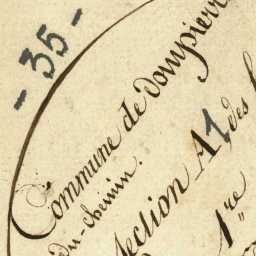 - 35 -
Commune de dompierre
du-chemin.
Section A1 des
1re